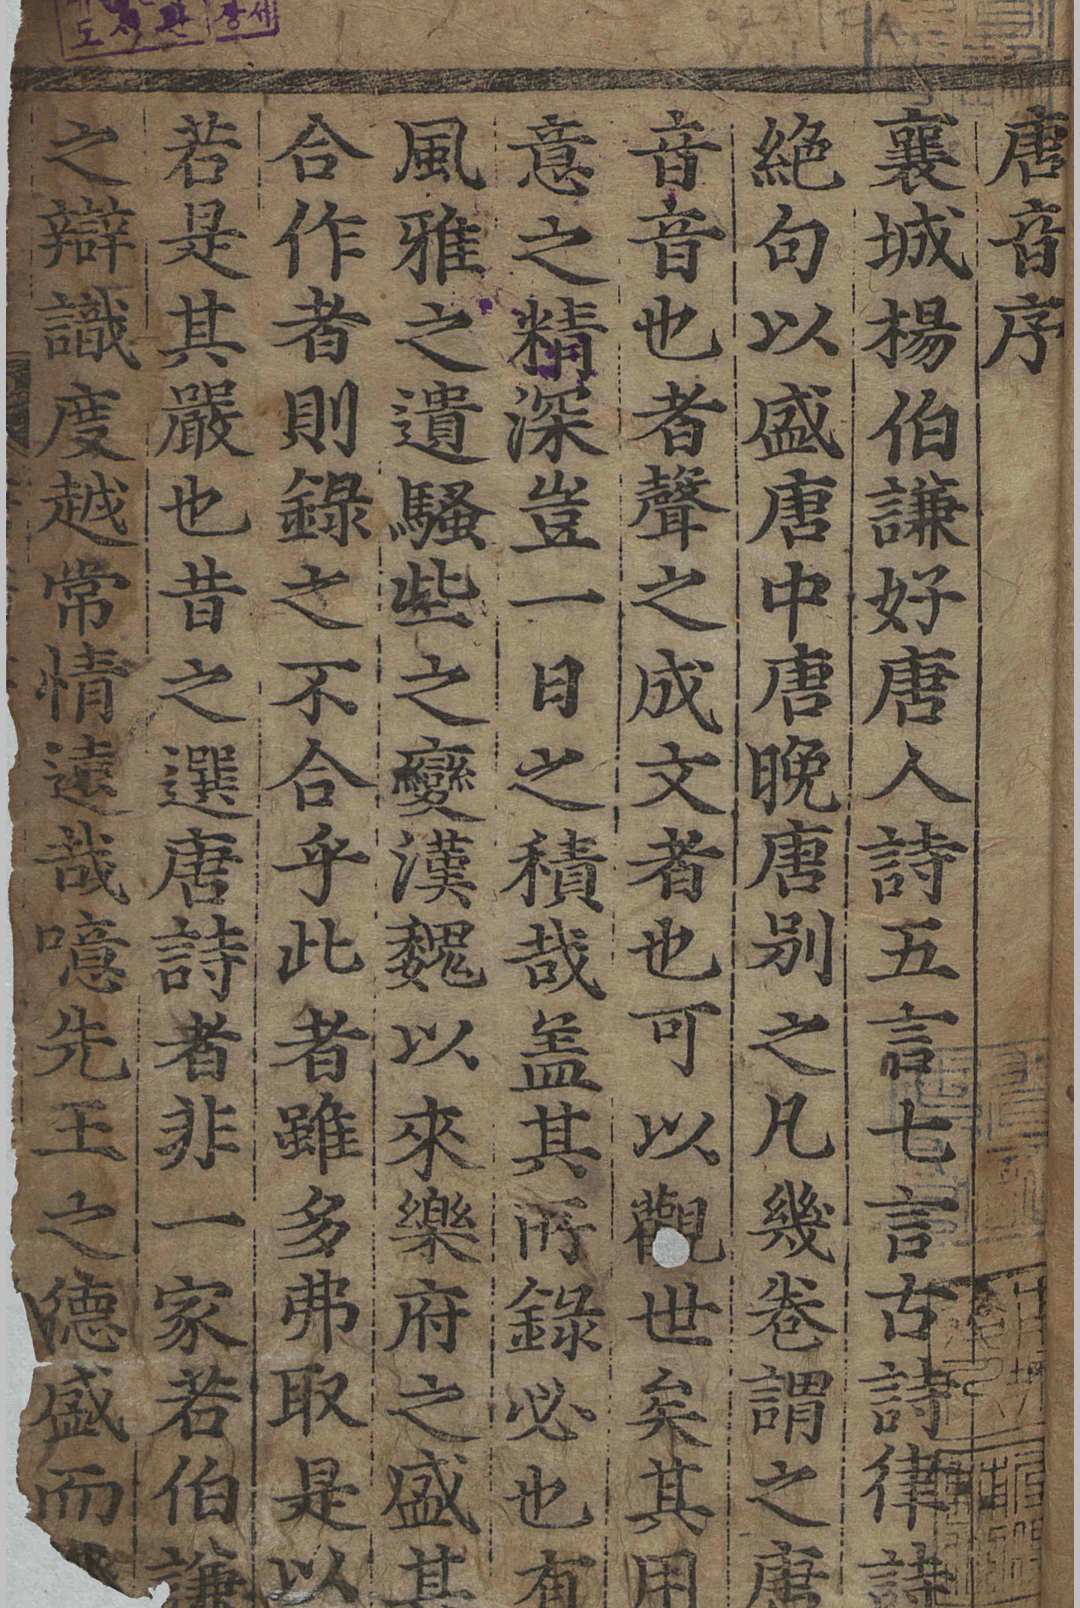 唐音序
襄城楊伯謙好唐人詩五言七言古詩律詩
絶句以盛唐中唐晚唐別之凡幾卷謂之唐
音音也者聲之成文者也可以觀世矣其用
意之精深豈一日之積哉盖其所錄必也有
風雅之遺騷些之變漢魏以來樂府之盛其
合作者則錄之不合乎此者雖多弗取是以
若是其嚴也昔之選唐詩者非一家若伯謙
之辯識度越常情遠哉噫先王之德盛而